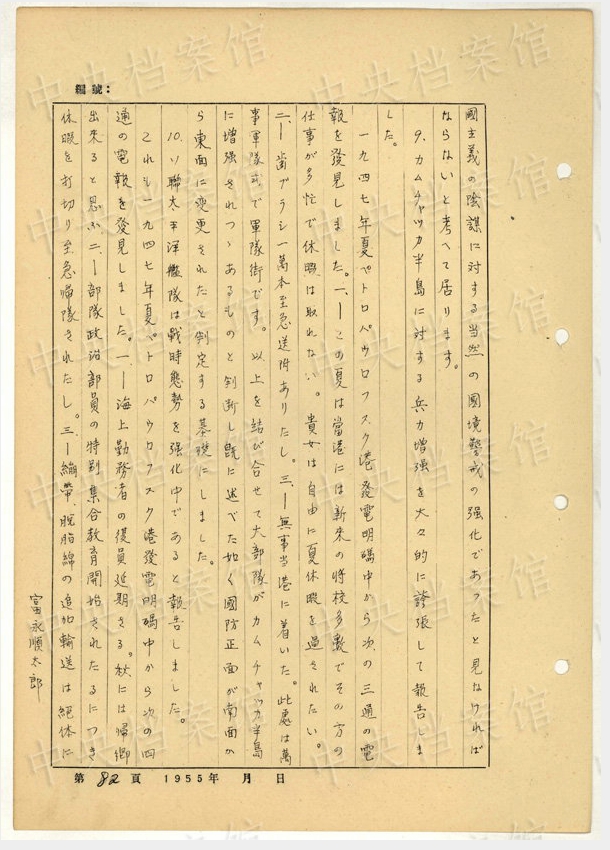 編號：
國主義の陰謀に対する当然の國境警戒の强化であったと見なければ
ならないと考へて居ります。
9、カムチャッカ半島に対する兵力增强を大々的に誇張して報告しま
した。
一九四七年夏ペトロパウロフスク港発電明碼中から次の三通の電
報を発見しました。一、ーこの夏は當港には新来の将校多数でその方の
仕事が多忙で休暇は取れない。貴女は自由に夏休暇を過されたい。
二、ー歯ブラシ一萬本至急送附ありたし。三、ー無事当港に着いた。此處は萬
事軍隊式で軍隊街です。以上を結び合せて大部隊がカムチャッカ半島
に増强されつゝあるものと判断し既に述べた如く國防正面が南面か
ら東面に変更されたと判定する基礎にしました。
10、ソ聯太平洋艦隊は戦時態勢を强化中であると報告しました。
これも一九四七年夏ペトロパウロフスク港發電明碼中から次の四
通の電報を発見しました。一、ー海上勤務者の復員延期さる。秋には帰郷
出来ると思ふ二、ー部隊政治部員の特別集合教育開始されたるにつき
休暇を打切り至急帰隊されたし。三、ー繃帯、脱脂綿の追加輸送は絶体に
富永順太郎
第82頁 1955年 月 日
中央档案馆